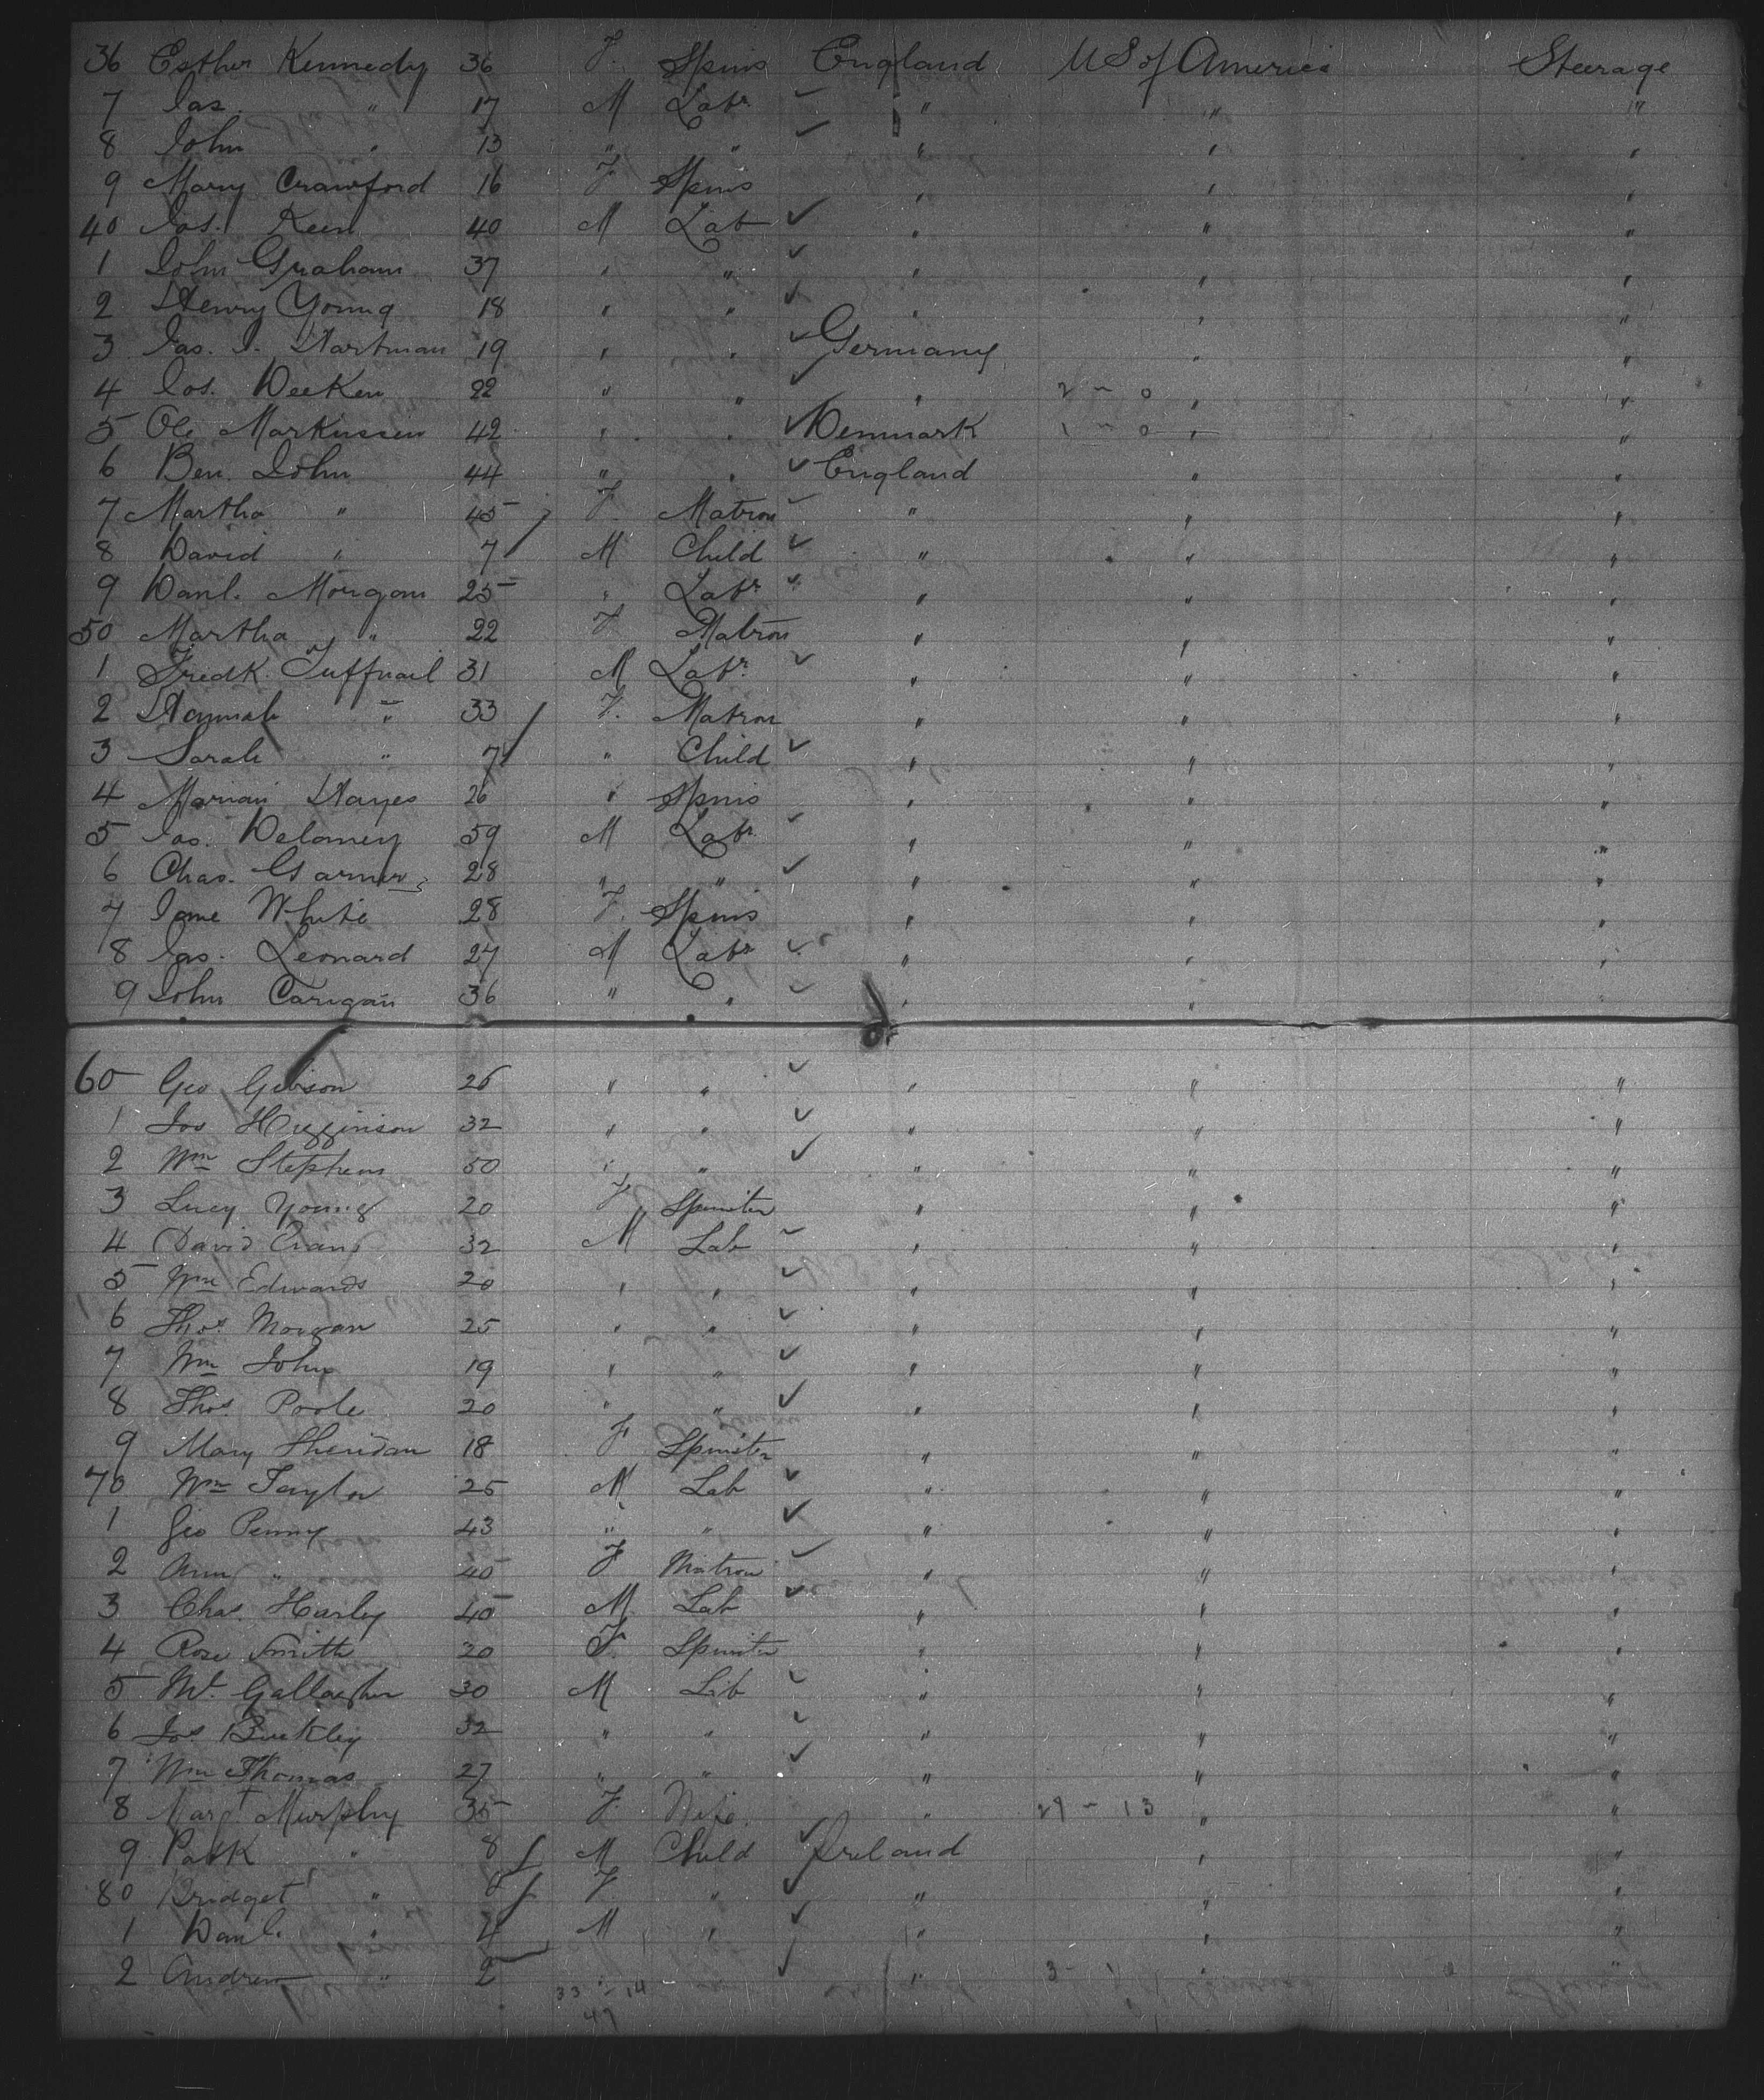 36 Esther Kennedy 36 F. Spins England US of America Steerage
7 Jas. " 17 M Labr ✓ " " "
8 John " 13 " " ✓ " " "
9 Mary Crawford 16 F Spins " " "
40 Jas. Keen 40 M Lab ✓ " " "
1 John Graham 37 " " ✓ " " "
2 Henry Young 18 " " ✓ " " "
3 Jas. J. Hartman 19 " " ✓ Germany " "
4 Jos. Deeken 22 " " ✓ " 2 - 0 " "
5 Ole Markussen 42 " " ✓ Denmark 1 - 0 " "
6 Ben. John 44 " " ✓ England " "
7 Martha " 45 F Matron ✓ " " "
8 David " 7 M Child ✓ " " "
9 Danl. Morgan 25 " Labr ✓ " " "
50 Martha " 22 F Matron " " "
1 Fredk. Tuffnail 31 M Labr. ✓ " " "
2 Hannah " 33 F. Matron " " "
3 Sarah " 7 " Child ✓ " " "
4 Marian Hayes 26 " Spins " " "
5 Jas. Delaney 59 M Labr ✓ " " "
6 Chas. Garner 28 " " ✓ " " "
7 Jane White 28 F. Spins " " "
8 Jas. Leonard 27 M Labr ✓ " " "
9 John Carigan 36 " " ✓ " " "
60 Geo Gibson 26 " " ✓ " " "
1 Jos Higginson 32 " " ✓ " " "
2 Wm Stephens 50 " " ✓ " " "
3 Lucy Young 20 F Spinster " " "
4 David 32 M Lab ✓ " " "
5 Wm Edwards 20 " " ✓ " " "
6 Thos. Morgan 25 " " ✓ " " "
7 Wm John 19 " " ✓ " " "
8 Thos. Poole 20 " " ✓ " " "
9 Mary Sheridan 18 F Spinster " " "
70 Wm Taylor 25 M Lab ✓ " " "
1 Geo Penny 43 " " ✓ " " "
2 Ann " 40 F Matron ✓ " " "
3 Chas. Harley 40 M Lab ✓ " " "
4 Rose Smith 20 F. Spinster " " "
5 Mt. Gallagher 30 M Lab ✓ " " "
6 Jos Buckley 32 " " ✓ " " "
7 Wm Thomas 27 " " ✓ " " "
8 Margt. Murphy 35 F. Wife " 29 - 13 " "
9 Patk " 8 M Child ✓ Ireland " "
80 Bridget " 6 F. " ✓ " " "
1 Danl. " 4 M " ✓ " " "
2 Andrew " 2 " ✓ " 3 - 1 " "
33 - 14
47